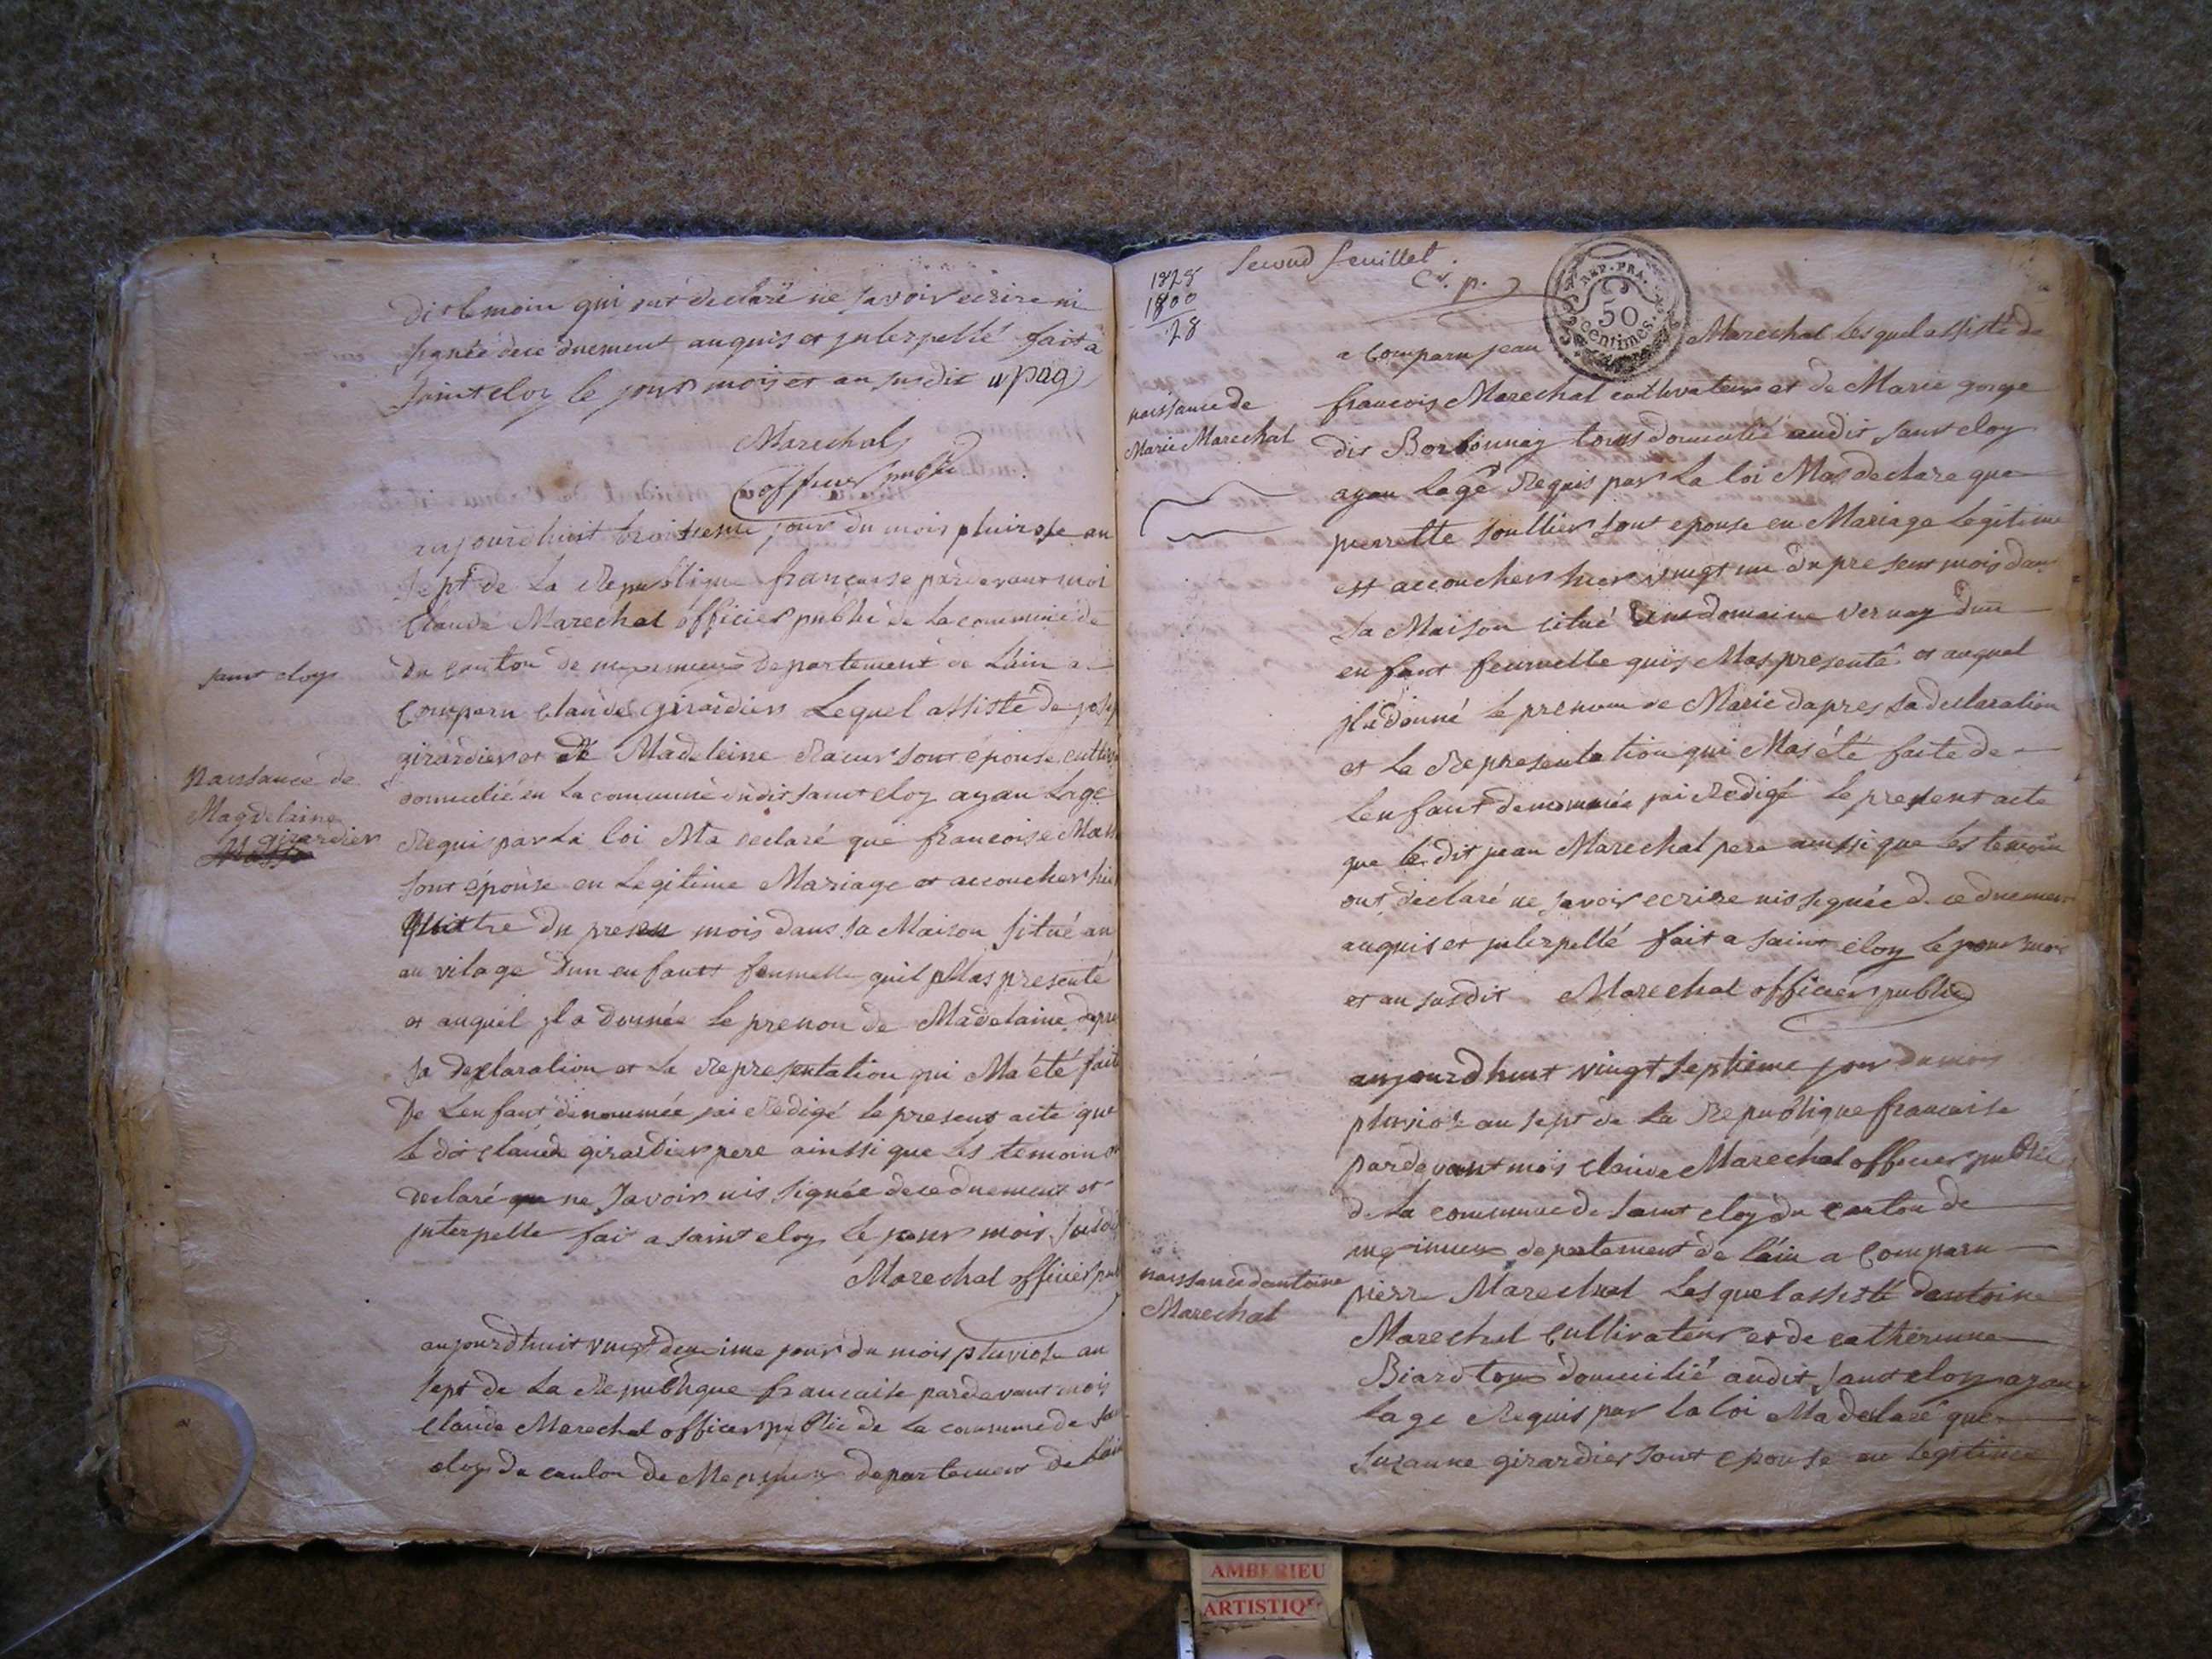 dit temoin qui ont declaré ne savoir ecrire ni
signée dece duement anquis et jnterpellé fait a
saint eloy le jour mois et an susdit
Marechal
officier public
aujourdhuit troisieme jour du mois pluviose an
sept de La Republique francaise pardevant moi
Claude Marechal officier publié de La commune de
saint eloy
du canton de meximieux departement de Lain a
comparu Claude girardier Lequel assisté de
girardier et de Madeleine sont épouse
Naissance de
Magdelaine
girardier
domicilié en La commune dudit saint eloy ayan Lage
Requis par La loi Ma declaré que francoise
sont épouse en Legitime Mariage et accoucher hier
du presen mois dans sa Maison situé au
au vilage dun enfant femmelle quil Mas presenté
et auquel jl a donnée Le prenon de Madelaine dapre
sa declaration et La representation qui Ma été faite
De Lenfant denommée jai Redigé le present acte que
le dit claude girardier pere ainssi que Les temoin
declaré que ne savoir nis signée dece duement et
jnterpelle fait a saint eloy le jour mois
Marechal officier
aujourdhuit vingt deuxime jour du mois pluviose an
sept de La Republique francaise pardevant mois
claude Marechal officier publié de La commune de
eloy du canton de Meximieux departement de Lain
1828
1800
28
second feuillet
REP. FRA.
50
centimes.
a comparu jean Marechal Lesquel assisté de
francois Marechal cultivateur et de Marie gorge
naissance de
Marie Marechal
dit Borbonnay tous domicilié audit saint eloy
ayan Lagé Requis par La loi Mas declare que
pierrette soullier sont epouse en Mariage Legitime
est accoucher hier vingt un du present mois dans
sa Maison situé domaine vernay dun
enfant feumelle quis Mas presenté et auquel
jl a donné le prenom de Marie dapres sa declaration
et La Representation qui Mas été faite de
Lenfant denommée jai Redigé Le present acte
que le dit jean Marechal pere ainssi que Les temoin
ont declaré ne savoir ecrire nis signée de ce duement
anquis et jnterpellé fait a saint eloy le jour mois
et an susdit Marechal officier publié
aujourdhuit vingt septieme jour du mois
pluviose an sept de La Republique francaise
pardevant mois claude Marechal officier publié
de La commune de saint eloy du canton de
meximieux departement de Lain a comparu
naissance dantoine
Marechal
pierre Marechal Lesquel assisté dantoine
Marechal cultivateur et de catherinne
Biard tous domicilié audit saint eloy ayan
Lage Requis par la loi Ma declaré que
suzanne girardier sont epouse en Legitime
AMBERIEU
ARTISTIQUE